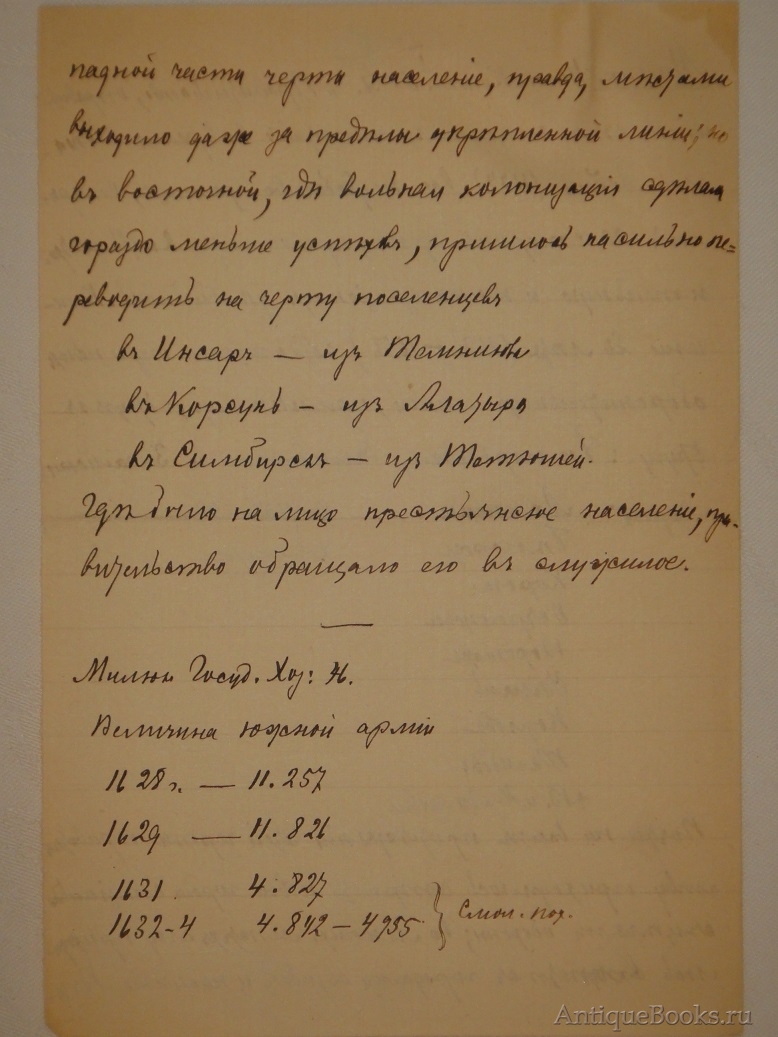 падной части черты населеніе, правда, мѣстами
выходило даже за предѣлы укрѣпленной линіи; но
въ восточной, гдѣ вольная колонизація сдѣлала
гораздо меньше успѣховъ, пришлось насильно пе=
реводить на черту поселенцевъ
въ Инсаръ — изъ Темникова
въ Корсунь — изъ Алатыря
въ Симбирскъ — изъ Тетюшей.
Гдѣ было на лицо крестьянское населеніе, пра-
вительство обращало его въ служилое.
—
Милюк. Госуд. Хоз:
Величина южной арміи
1628 г. — 11.257
1629 — 11.826
1631 4.827
1632-4 4.842 – 4955 } Смол. пох.
AntiqueBooks.ru